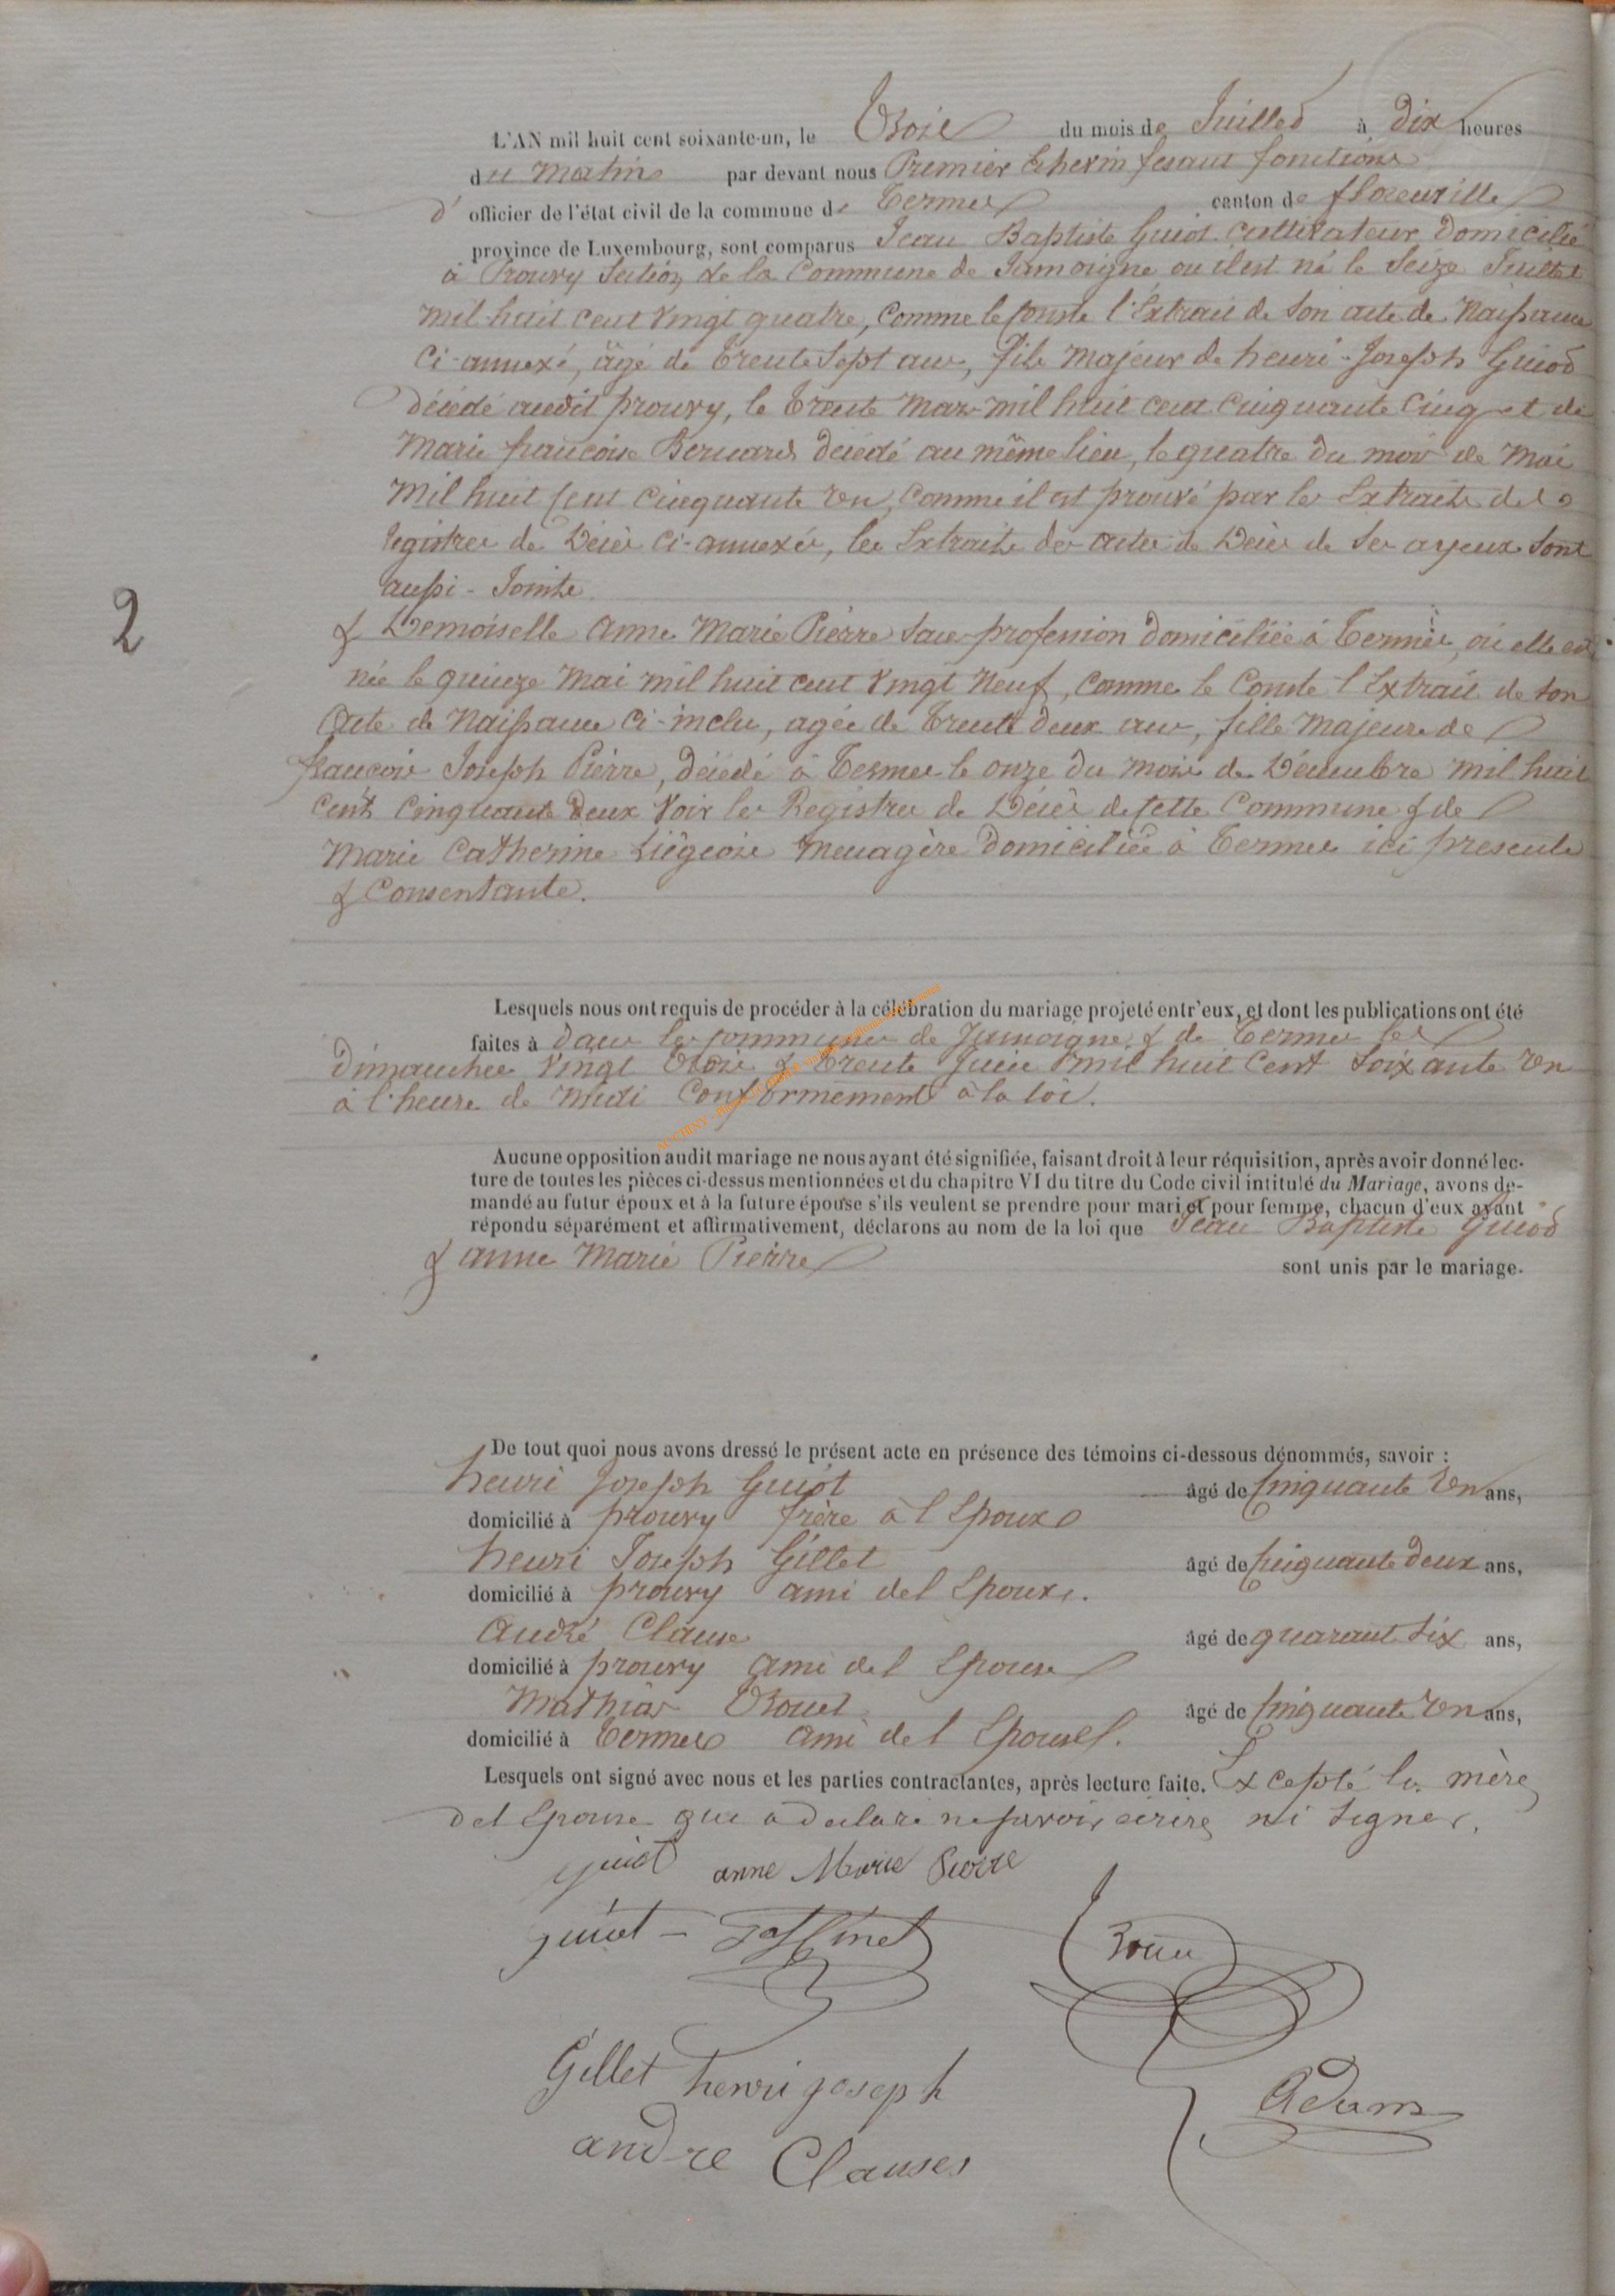 L'AN mil huit cent soixante-un, le Trois du mois de Juillet à Dix heures
du matin par devant nous Premier Echevin fesant fonctions
d' officier de l'état civil de la commune de Termes canton de florenville
province de Luxembourg, sont comparus Jean Baptiste Guiot cultivateur Domicilié
à Prouvy Section de la Commune de Jamoigne ou il est né le Seize Juillet
mil huit cent vingt quatre, comme le conste l'Extrait de son acte de Naissance
Ci-annexé, âgé de trente sept ans, fils majeur de henri-Joseph Guiot
Décédé audit prouvy, le trente mars mil huit cent cinquante cinq et de
Marie francoise Bernard décédé au même lieu, le quatre du mois de Mai
Mil huit cent cinquante un, comme il est prouvé par les Extraits des
registres de Décès ci-annexés, les Extraits des actes de Décès de ses ayeux sont
aussi-Joints.
2
& Demoiselle Anne Marie Pierre sans profession domiciliée à Termes, où elle est
née le quinze Mai mil huit cent vingt neuf, comme le conste l'Extrait de son
acte de Naissance ci-inclu, agée de trente deux ans, fille majeure de
francois Joseph Pierre, décédé à Termes le onze du mois de Décembre mil huit
cent cinquante deux voir les Registres de Décès de cette Commune & de
Marie Catherine Liégeois menagère domiciliée à Termes ici presente
& Consentante.
Lesquels nous ont requis de procéder à la célébration du mariage projeté entr'eux, et dont les publications ont été
faites à dans les communes de Jamoigne & de Termes les
Dimanches vingt trois & trente Juin mil huit cent soixante un
à l'heure de midi conformément à la loi.
Aucune opposition audit mariage ne nous ayant été signifiée, faisant droit à leur réquisition, après avoir donné lec-
ture de toutes les pièces ci-dessus mentionnées et du chapitre VI du titre du Code civil intitulé du Mariage, avons de-
mandé au futur époux et à la future épouse s'ils veulent se prendre pour mari et pour femme, chacun d'eux ayant
répondu séparément et affirmativement, déclarons au nom de la loi que Jean Baptiste Guiot
& anne Marie Pierre sont unis par le mariage.
De tout quoi nous avons dressé le présent acte en présence des témoins ci-dessous dénommés, savoir :
henri Joseph Guiot âgé de cinquante un ans,
domicilié à prouvy frère à l Epoux
henri Joseph Gillet âgé de cinquante deux ans,
domicilié à prouvy ami del Epoux.
André Clause âgé de quarant six ans,
domicilié à prouvy ami del Epouse
Mathias âgé de cinquante un ans,
domicilié à Termes ami del Epouse.
Lesquels ont signé avec nous et les parties contractantes, après lecture faite. Excepté la mère
del Epouse que a declaré ne savoir ecrire ni signer.
guiot anne Marie Pierre
guiot
Gillet henri joseph
Adam
andre Clauses